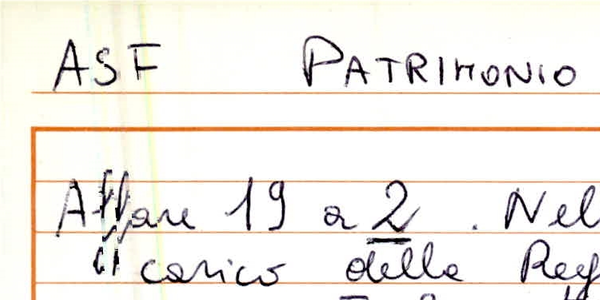 ASF PATRIMONIO
Affare 19 a 2. Nel
il carico della Reg